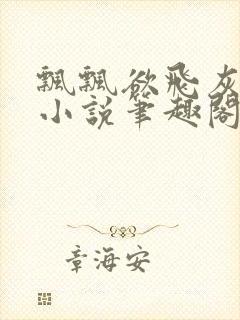 飘飘欲飞灰
小说笔趣阁
章海安